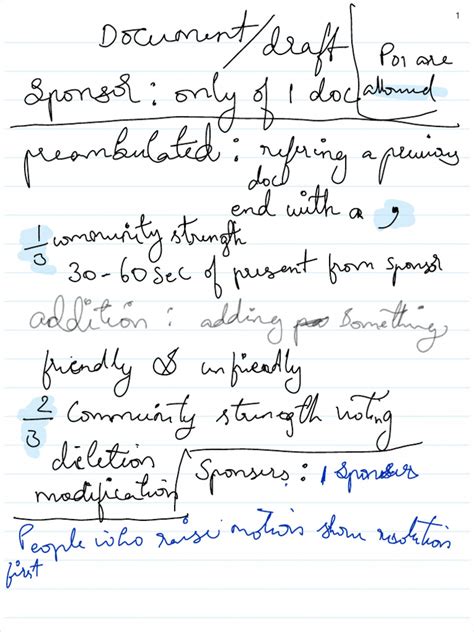 1
Document/draft
POI are
allowed
Sponsor : only of 1 doc
preambulated : refering a previous
doc
end with a ,
1/3 community strength
30-60 sec of present from sponsor
addition : adding something
friendly & unfriendly
2/3 Community strength voting
deletion
modification
Sponsers : 1 sponsers
People who raise motion show resolution
first